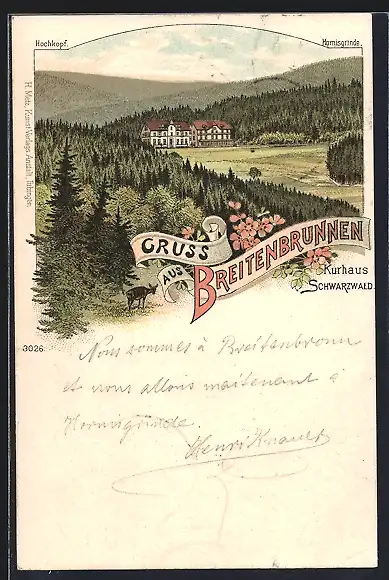 Hochkopf.
Hornisgrinde.
H. Metz, Kunst-Verlags-Anstalt, Tübingen.
GRUSS
AUS
BREITENBRUNNEN
Kurhaus
SCHWARZWALD.
3026.
Nous sommes à Breitenbronn
et nous allons maitenant a
Hornisgrinde.
Henri Knauer